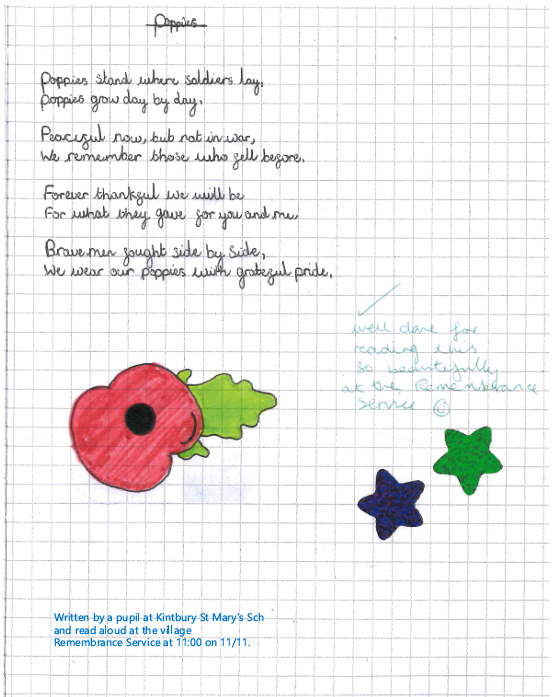 Poppies
Poppies stand where soldiers lay,
Poppies grow day by day.
Peaceful now, but not in war,
We remember those who fell before.
Forever thankful we will be
For what they gave for you and me.
Brave men fought side by side,
We wear our poppies with grateful pride.
well done for
reading this
so beautifully
at the Remembrance
Service ☺
Written by a pupil at Kintbury St Mary's Sch
and read aloud at the village
Remembrance Service at 11:00 on 11/11.